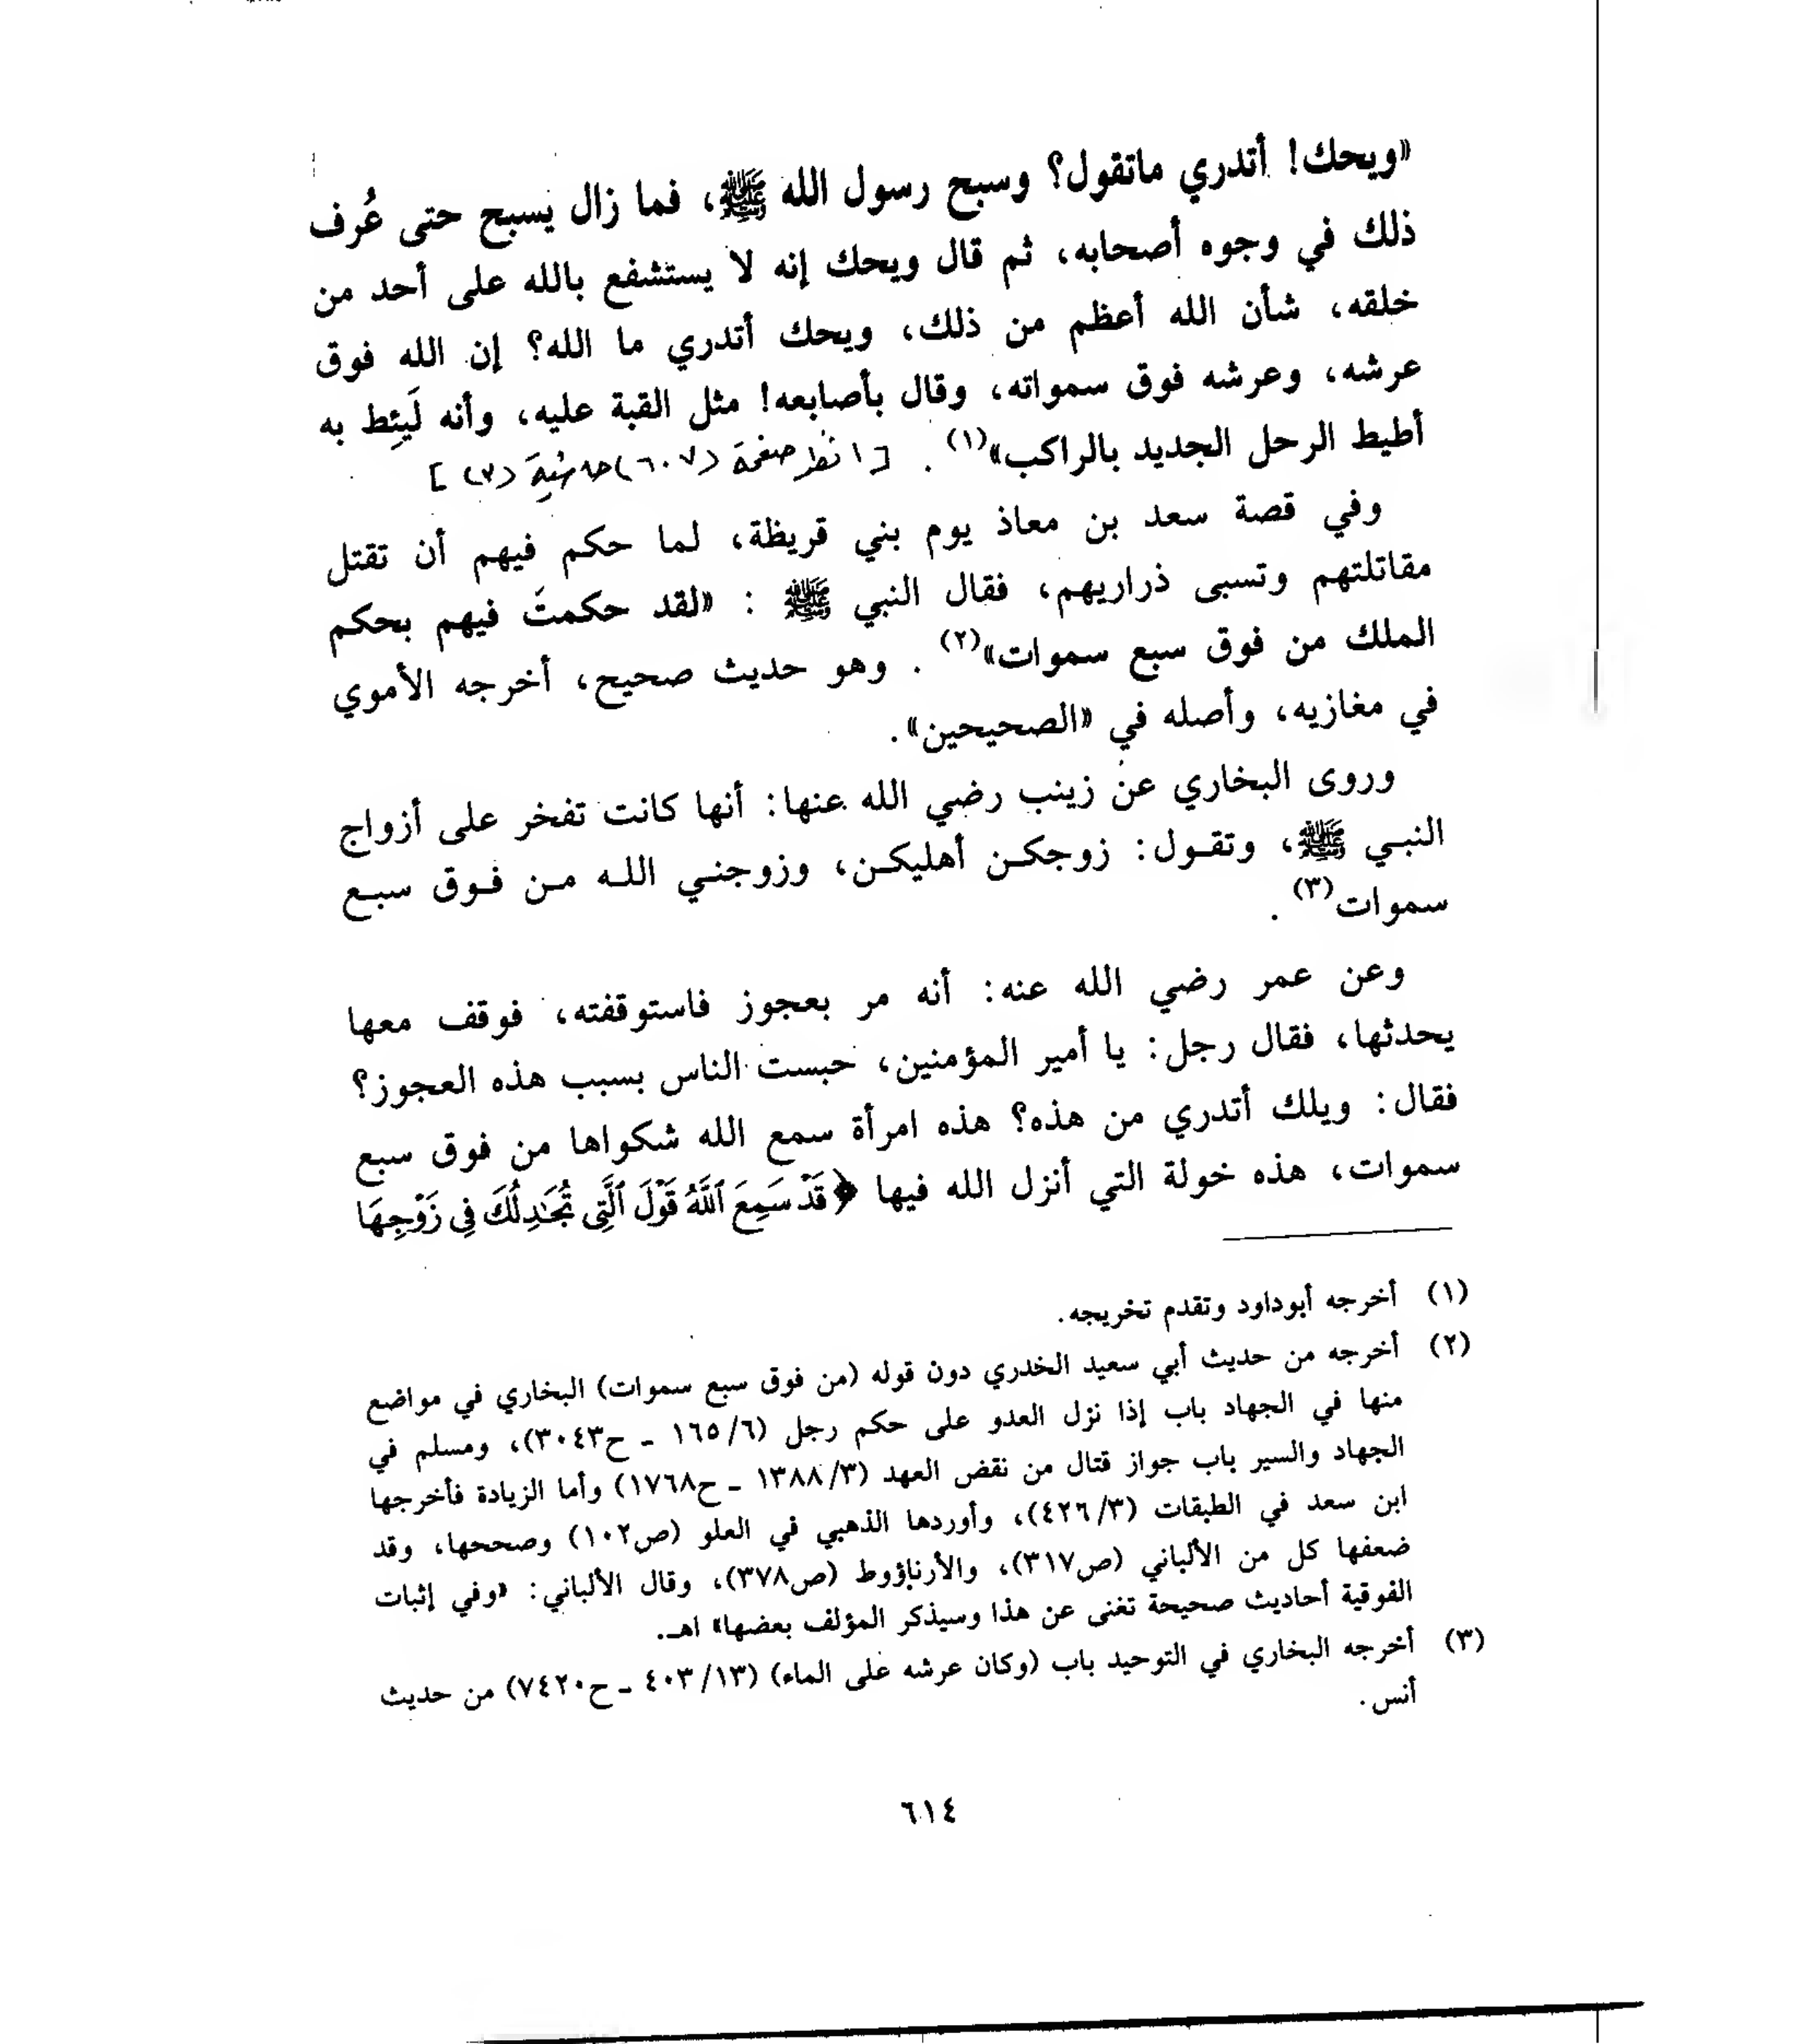 «ويحك! أتدري ماتقول؟ وسبح رسول الله ﷺ، فما زال يسبح حتى عُرف
ذلك في وجوه أصحابه، ثم قال ويحك إنه لا يستشفع بالله على أحد من
خلقه، شأن الله أعظم من ذلك، ويحك أتدري ما الله؟ إن الله فوق
عرشه، وعرشه فوق سمواته، وقال بأصابعه! مثل القبة عليه، وأنه لَيئِط به
أطيط الرحل الجديد بالراكب»(١) . [انظر صفحة (٦٠٧) حاشية (٢)]
وفي قصة سعد بن معاذ يوم بني قريظة، لما حكم فيهم أن تقتل
مقاتلتهم وتسبى ذراريهم، فقال النبي ﷺ : «لقد حكمتَ فيهم بحكم
الملك من فوق سبع سموات»(٢) . وهو حديث صحيح، أخرجه الأموي
في مغازيه، وأصله في «الصحيحين».
وروى البخاري عن زينب رضي الله عنها: أنها كانت تفخر على أزواج
النبي ﷺ، وتقول: زوجكن أهليكن، وزوجني الله من فوق سبع
سموات(٣) .
وعن عمر رضي الله عنه: أنه مر بعجوز فاستوقفته، فوقف معها
يحدثها، فقال رجل: يا أمير المؤمنين، حبست الناس بسبب هذه العجوز؟
فقال: ويلك أتدري من هذه؟ هذه امرأة سمع الله شكواها من فوق سبع
سموات، هذه خولة التي أنزل الله فيها ﴿قَدْ سَمِعَ ٱللَّهُ قَوْلَ ٱلَّتِى تُجَٰدِلُكَ فِى زَوْجِهَا
(١) أخرجه أبوداود وتقدم تخريجه.
(٢) أخرجه من حديث أبي سعيد الخدري دون قوله (من فوق سبع سموات) البخاري في مواضع
منها في الجهاد باب إذا نزل العدو على حكم رجل (٦/ ١٦٥ ـ ح٣٠٤٣)، ومسلم في
الجهاد والسير باب جواز قتال من نقض العهد (٣/ ١٣٨٨ ـ ح١٧٦٨) وأما الزيادة فأخرجها
ابن سعد في الطبقات (٣/ ٤٢٦)، وأوردها الذهبي في العلو (ص١٠٢) وصححها، وقد
ضعفها كل من الألباني (ص٣١٧)، والأرناؤوط (ص٣٧٨)، وقال الألباني: «وفي إثبات
الفوقية أحاديث صحيحة تغنى عن هذا وسيذكر المؤلف بعضها» اهـ.
(٣) أخرجه البخاري في التوحيد باب (وكان عرشه على الماء) (١٣/ ٤٠٣ ـ ح٧٤٢٠) من حديث
أنس.
٦١٤